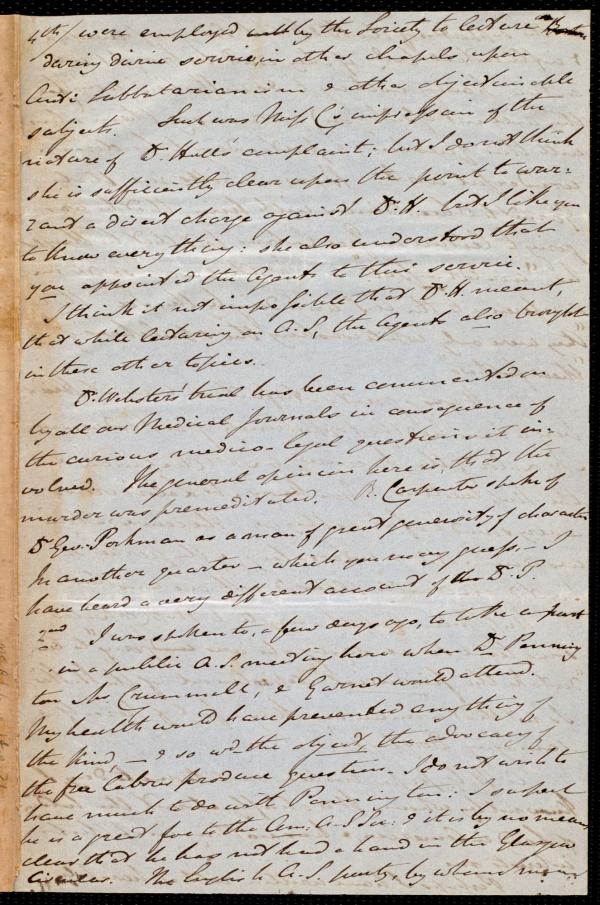 4th/ were employed by the Society to lecture in
during divine service, in other chapels upon
Anti Sabbatarianism & other objectionable
subjects. Such was Miss C's impression of the
nature of Dr. Hull's complaint; but I do not think
she is sufficiently clear upon the point to war=
rant a direct charge against Dr. H. but I like you
to know everything: she also understood that
you appointed the Agents to this service.
I think it not impossible that Dr. H. meant,
that while lecturing on A.S., the Agents also brought
in these other topics.
Dr. Webster's trial has been commented on
by all our Medical Journals in consequence of
the curious medico-legal questions it in=
volved. The general opinion here is that the
murder was premeditated. Carpenter spoke of
Dr Geo. Parkman as a man of great generosity of character
In another quarter - which you may guess, - I
have heard a very different account of this Dr. P.
2nd I was spoken to, a few days ago, to take a part
in a public A.S. meeting here when Dr Penning
ton Mr Crummell, & Garnet would attend.
My health would have prevented anything of
the kind - & so wd the object, the advocacy of
the free labour produce question. I do not wish to
have much to do with Pennington; I suspect
he is a great foe to the Am. A.S. So: & it is by no means
clear that he has not had a hand in the Glasgow
Circular. The English A.S. party, by whom